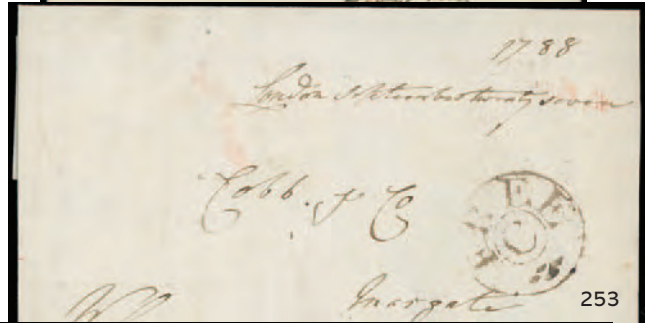 1788
London September twenty seven
Cobb. & Co
FREE
Margate
253